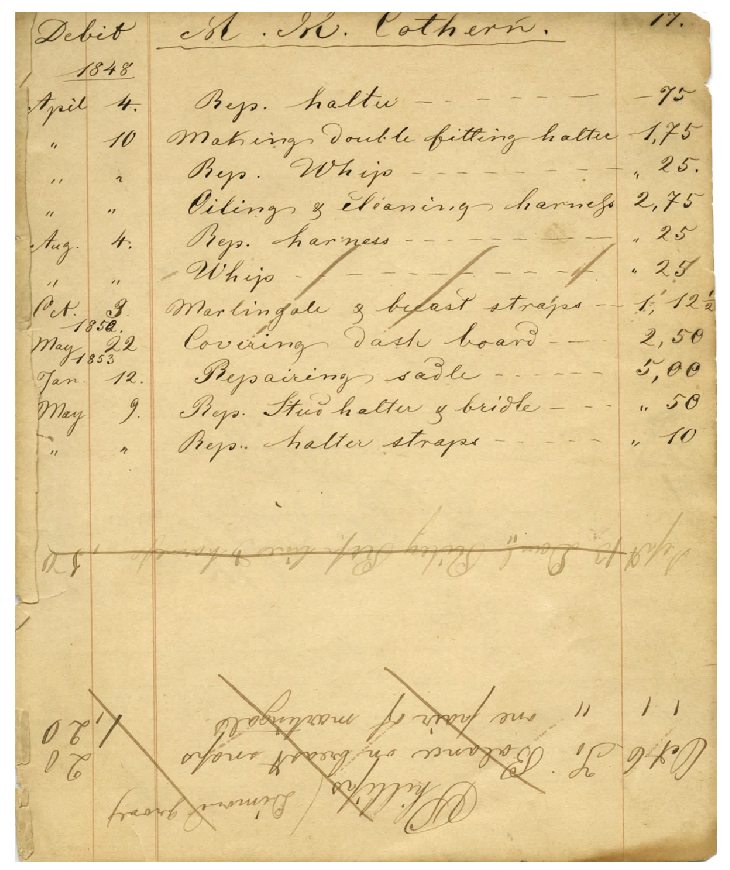 Debit M. M. Cothern. 17.
1848
April 4. Rep. halter - - - - - 75
" 10 Making double fitting halter 1,75
" " Rep. Whip - - - - - " 25.
" " Oiling & cleaning harness 2,75
Aug. 4. Rep. harness - - - - - " 25
" " Whip - - - - - " 25
Oct. 9 Martingale & breast straps - - 1, 12 1/2
1852.
May 22 Covering dash board - - - 2,50
1853
Jan. 12. Repairing sadle - - - - - 5,00
May 9. Rep. Stud halter & bridle - - - " 50
" " Rep. halter straps - - - - - " 10
Sept 13 Riley Rep. lines & harness 50
Phillips
Oct 6 To Balance on breast snaps 20
" " " one pair of martingals 1,20